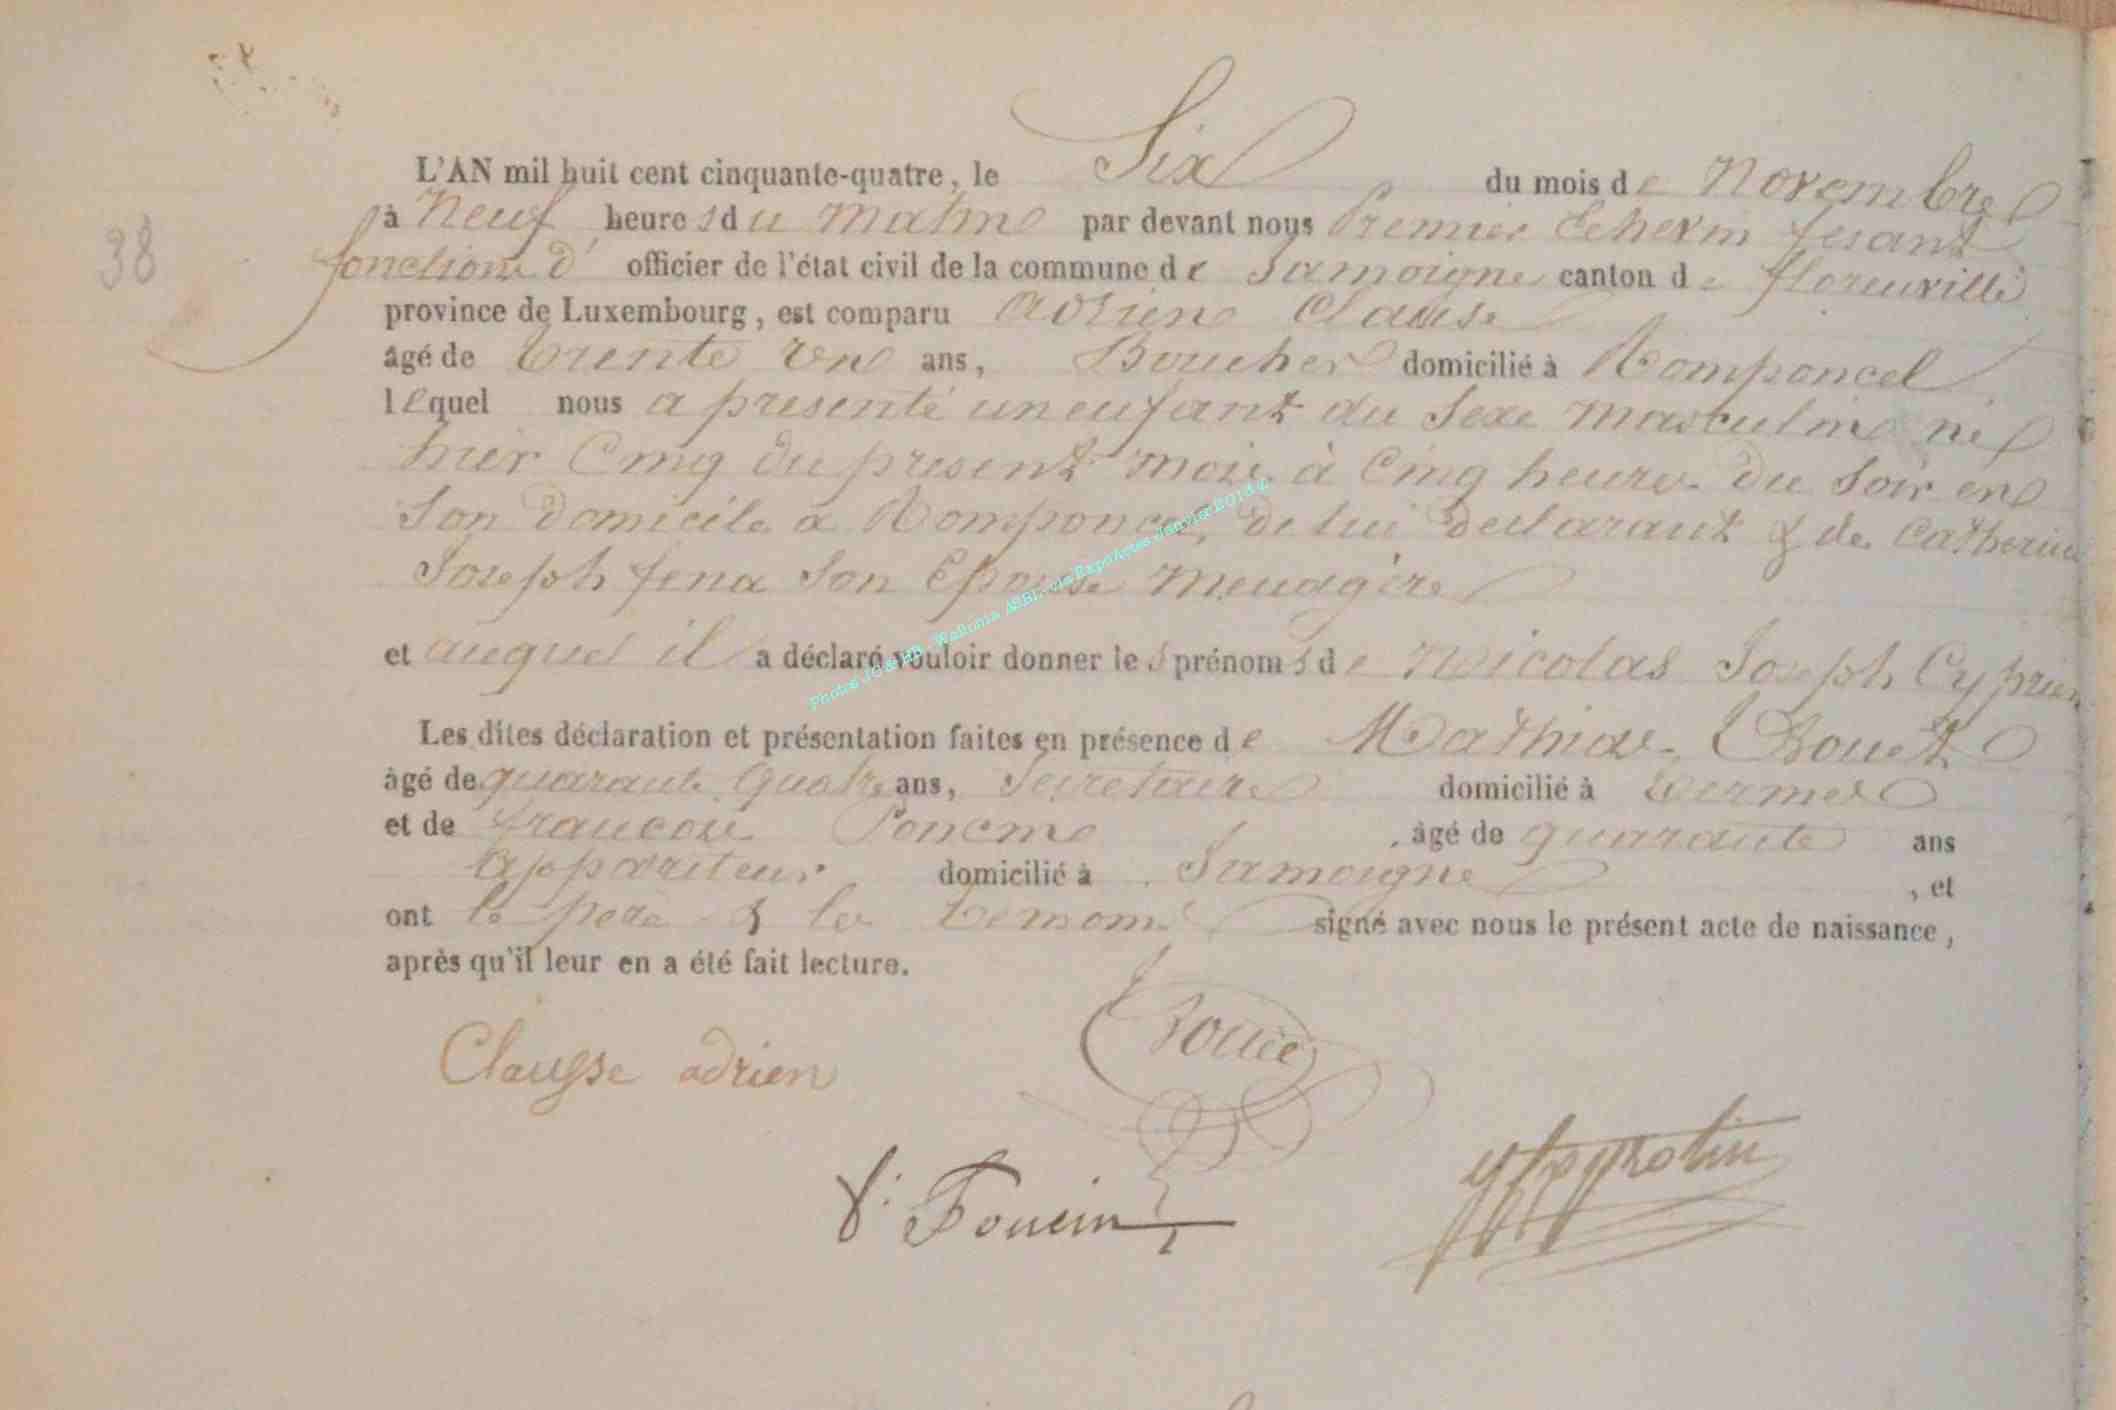 38
L'AN mil huit cent cinquante-quatre, le Six du mois de Novembre
à Neuf heures du matin par devant nous Premier Echevin fesant
fonctions d' officier de l'état civil de la commune de Jamoigne canton de florenville
province de Luxembourg, est comparu Adrien Clausse
âgé de trente un ans, Boucher domicilié à Romponcel
lequel nous a presenté un enfant du Sexe masculin né
hier Cinq du présent mois à Cinq heures du Soir en
Son domicile a Romponcel, de lui declarant & de Catherine
Joseph fena Son Epouse menagère
et auquel il a déclaré vouloir donner les prénoms de Nicolas Joseph Cyprien
Les dites déclaration et présentation faites en présence de Mathias Bouet
âgé de quarante quatre ans, Secretaire domicilié à
et de francois Poncin , âgé de quarante ans
appariteur domicilié à Jamoigne , et
ont le père & les témoins signé avec nous le présent acte de naissance,
après qu'il leur en a été fait lecture.
Clausse adrien
f. Poncin